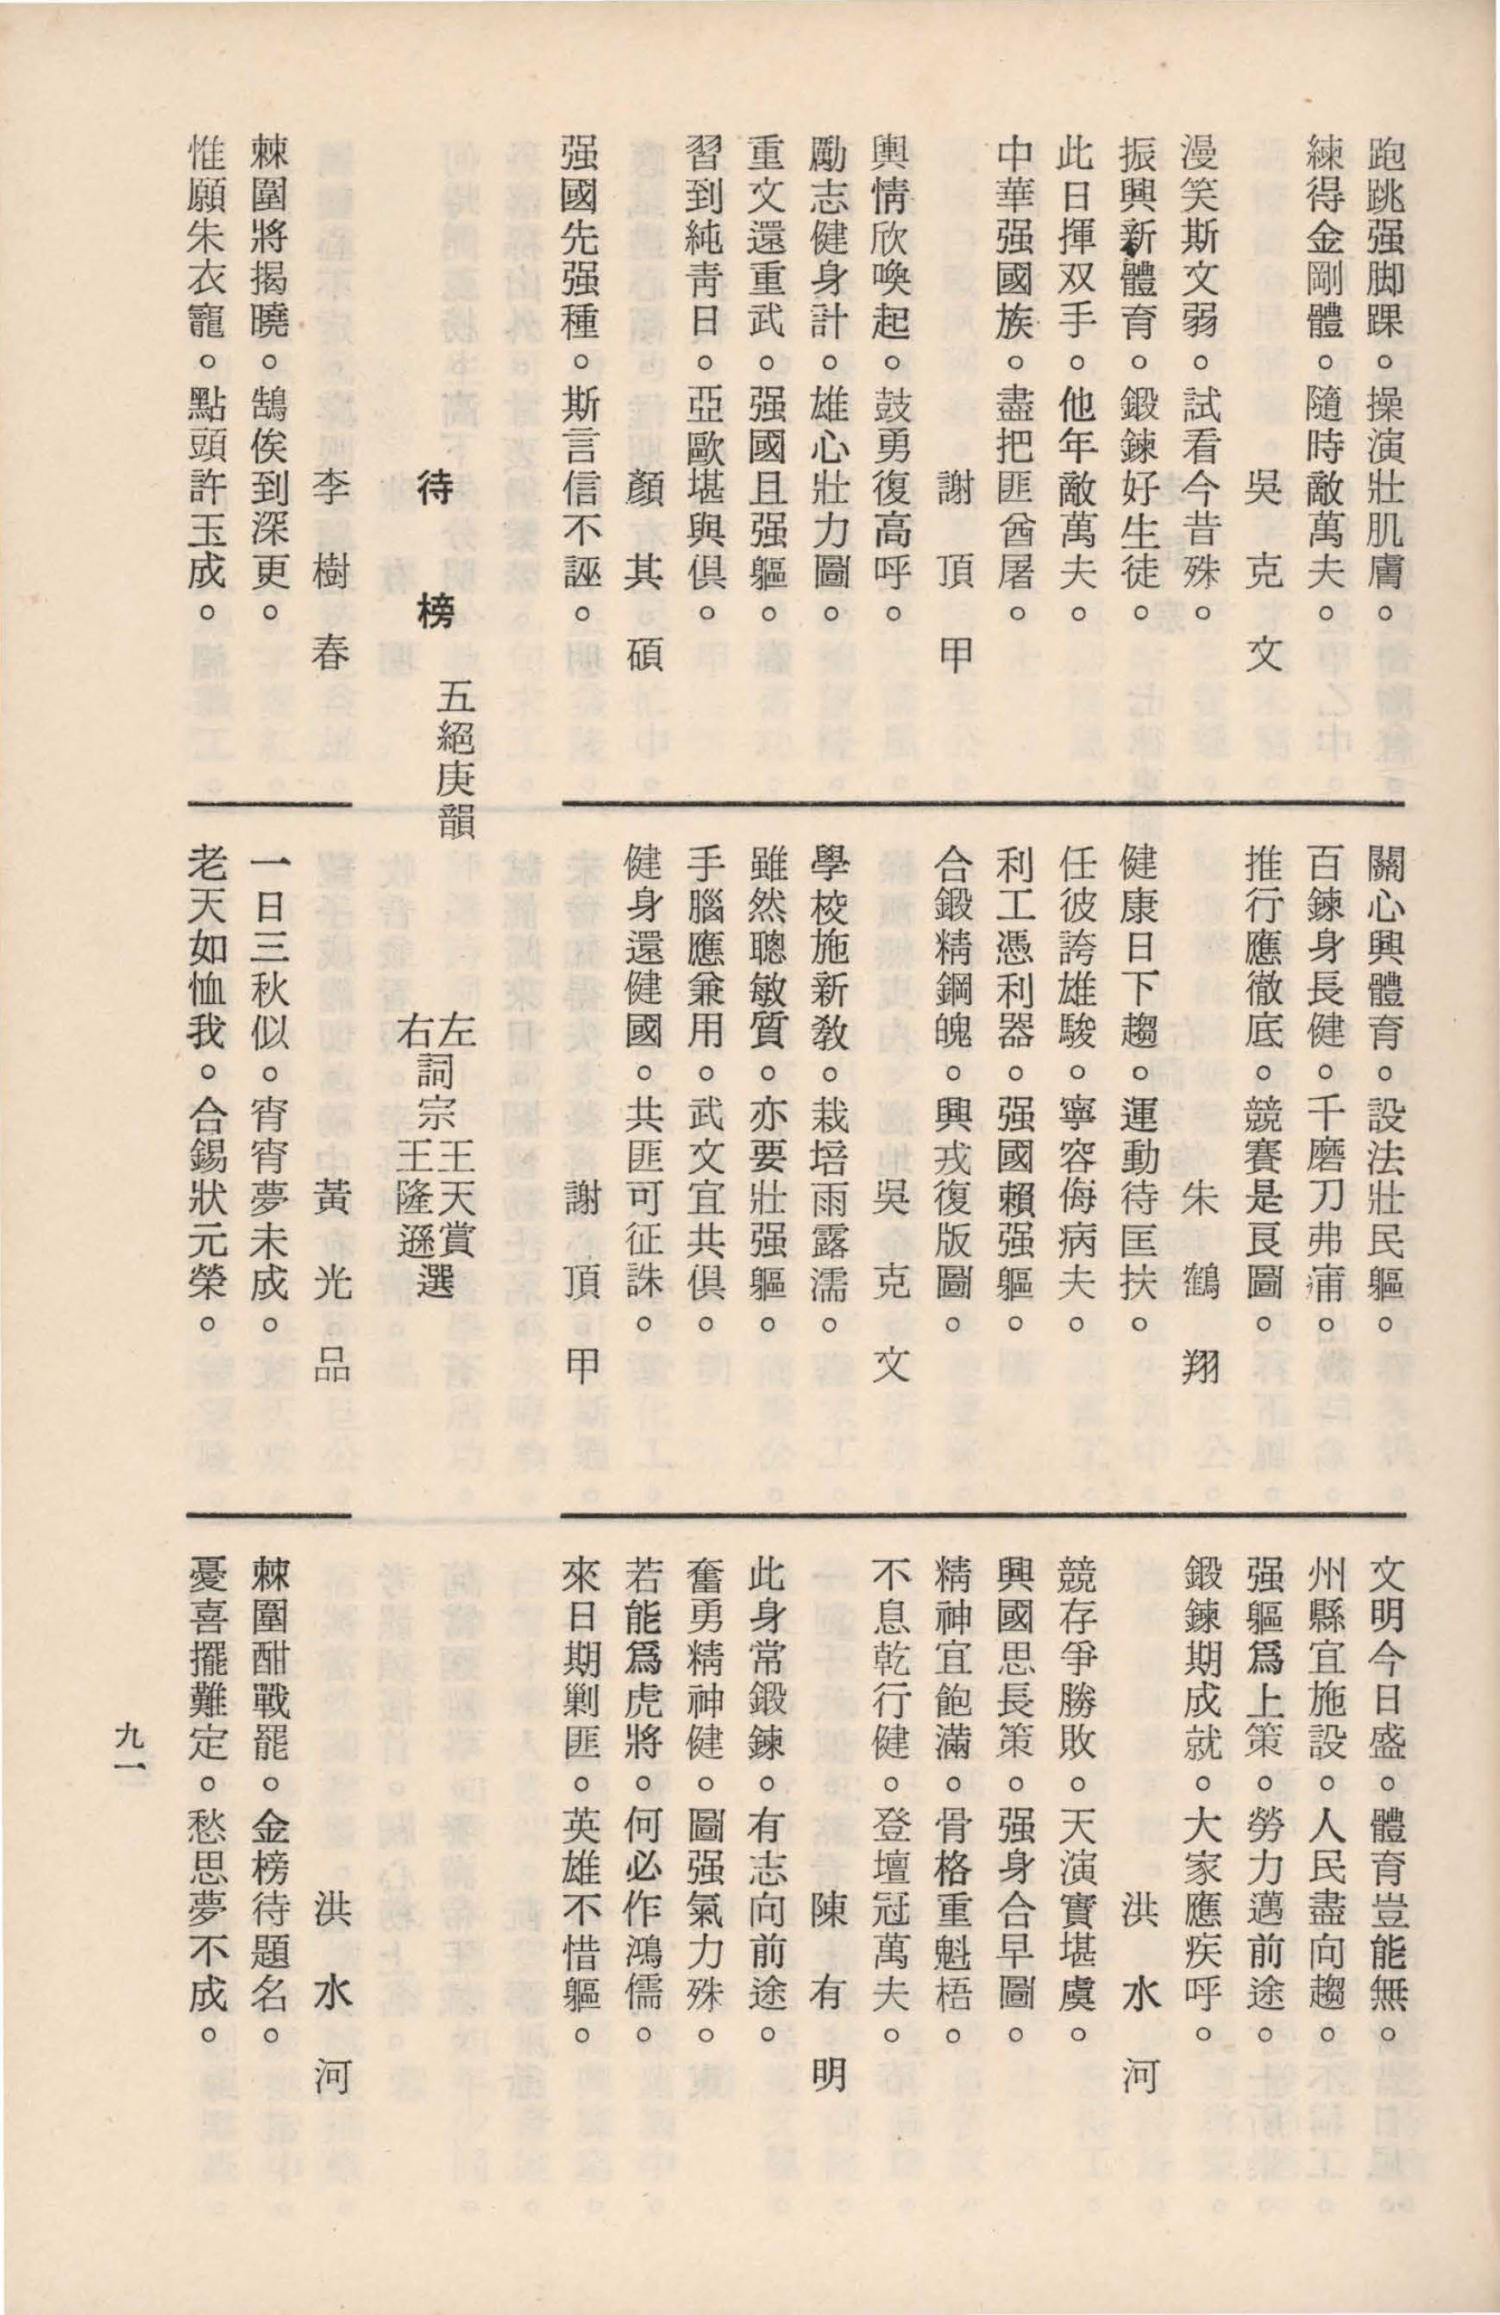 跑跳强脚踝。操演壯肌膚。
練得金剛體。隨時敵萬夫。
吳克文
漫笑斯文弱。試看今昔殊。
振興新體育。鍛鍊好生徒。
此日揮双手。他年敵萬夫。
中華强國族。盡把匪酋屠。
謝頂甲
輿情欣喚起。鼓勇復高呼。
勵志健身計。雄心壯力圖。
重文還重武。强國且强軀。
習到純靑日。亞歐堪與俱。
顏其碩
强國先强種。斯言信不誣。
關心興體育。設法壯民軀。
百鍊身長健。千磨刀弗痡。
推行應徹底。競賽是良圖。
朱鶴翔
健康日下趨。運動待匡扶。
任彼誇雄駿。寧容侮病夫。
利工憑利器。强國賴强軀。
合鍛精鋼魄。興戎復版圖。
吳克文
學校施新敎。栽培雨露濡。
雖然聰敏質。亦要壯强軀。
手腦應兼用。武文宜共俱。
健身還健國。共匪可征誅。
謝頂甲
文明今日盛。體育豈能無。
州縣宜施設。人民盡向趨。
强軀爲上策。勞力邁前途。
鍛鍊期成就。大家應疾呼。
洪水河
競存爭勝敗。天演實堪虞。
興國思長策。强身合早圖。
精神宜飽滿。骨格重魁梧。
不息乾行健。登壇冠萬夫。
陳有明
此身常鍛鍊。有志向前途。
奮勇精神健。圖强氣力殊。
若能爲虎將。何必作鴻儒。
來日期剿匪。英雄不惜軀。
待榜 五絕庚韻
左詞宗王天賞選
右詞宗王隆遜選
李樹春
棘圍將揭曉。鵠俟到深更。
惟願朱衣寵。點頭許玉成。
黃光品
一日三秋似。宵宵夢未成。
老天如恤我。合錫狀元榮。
洪水河
棘圍酣戰罷。金榜待題名。
憂喜擺難定。愁思夢不成。
九一